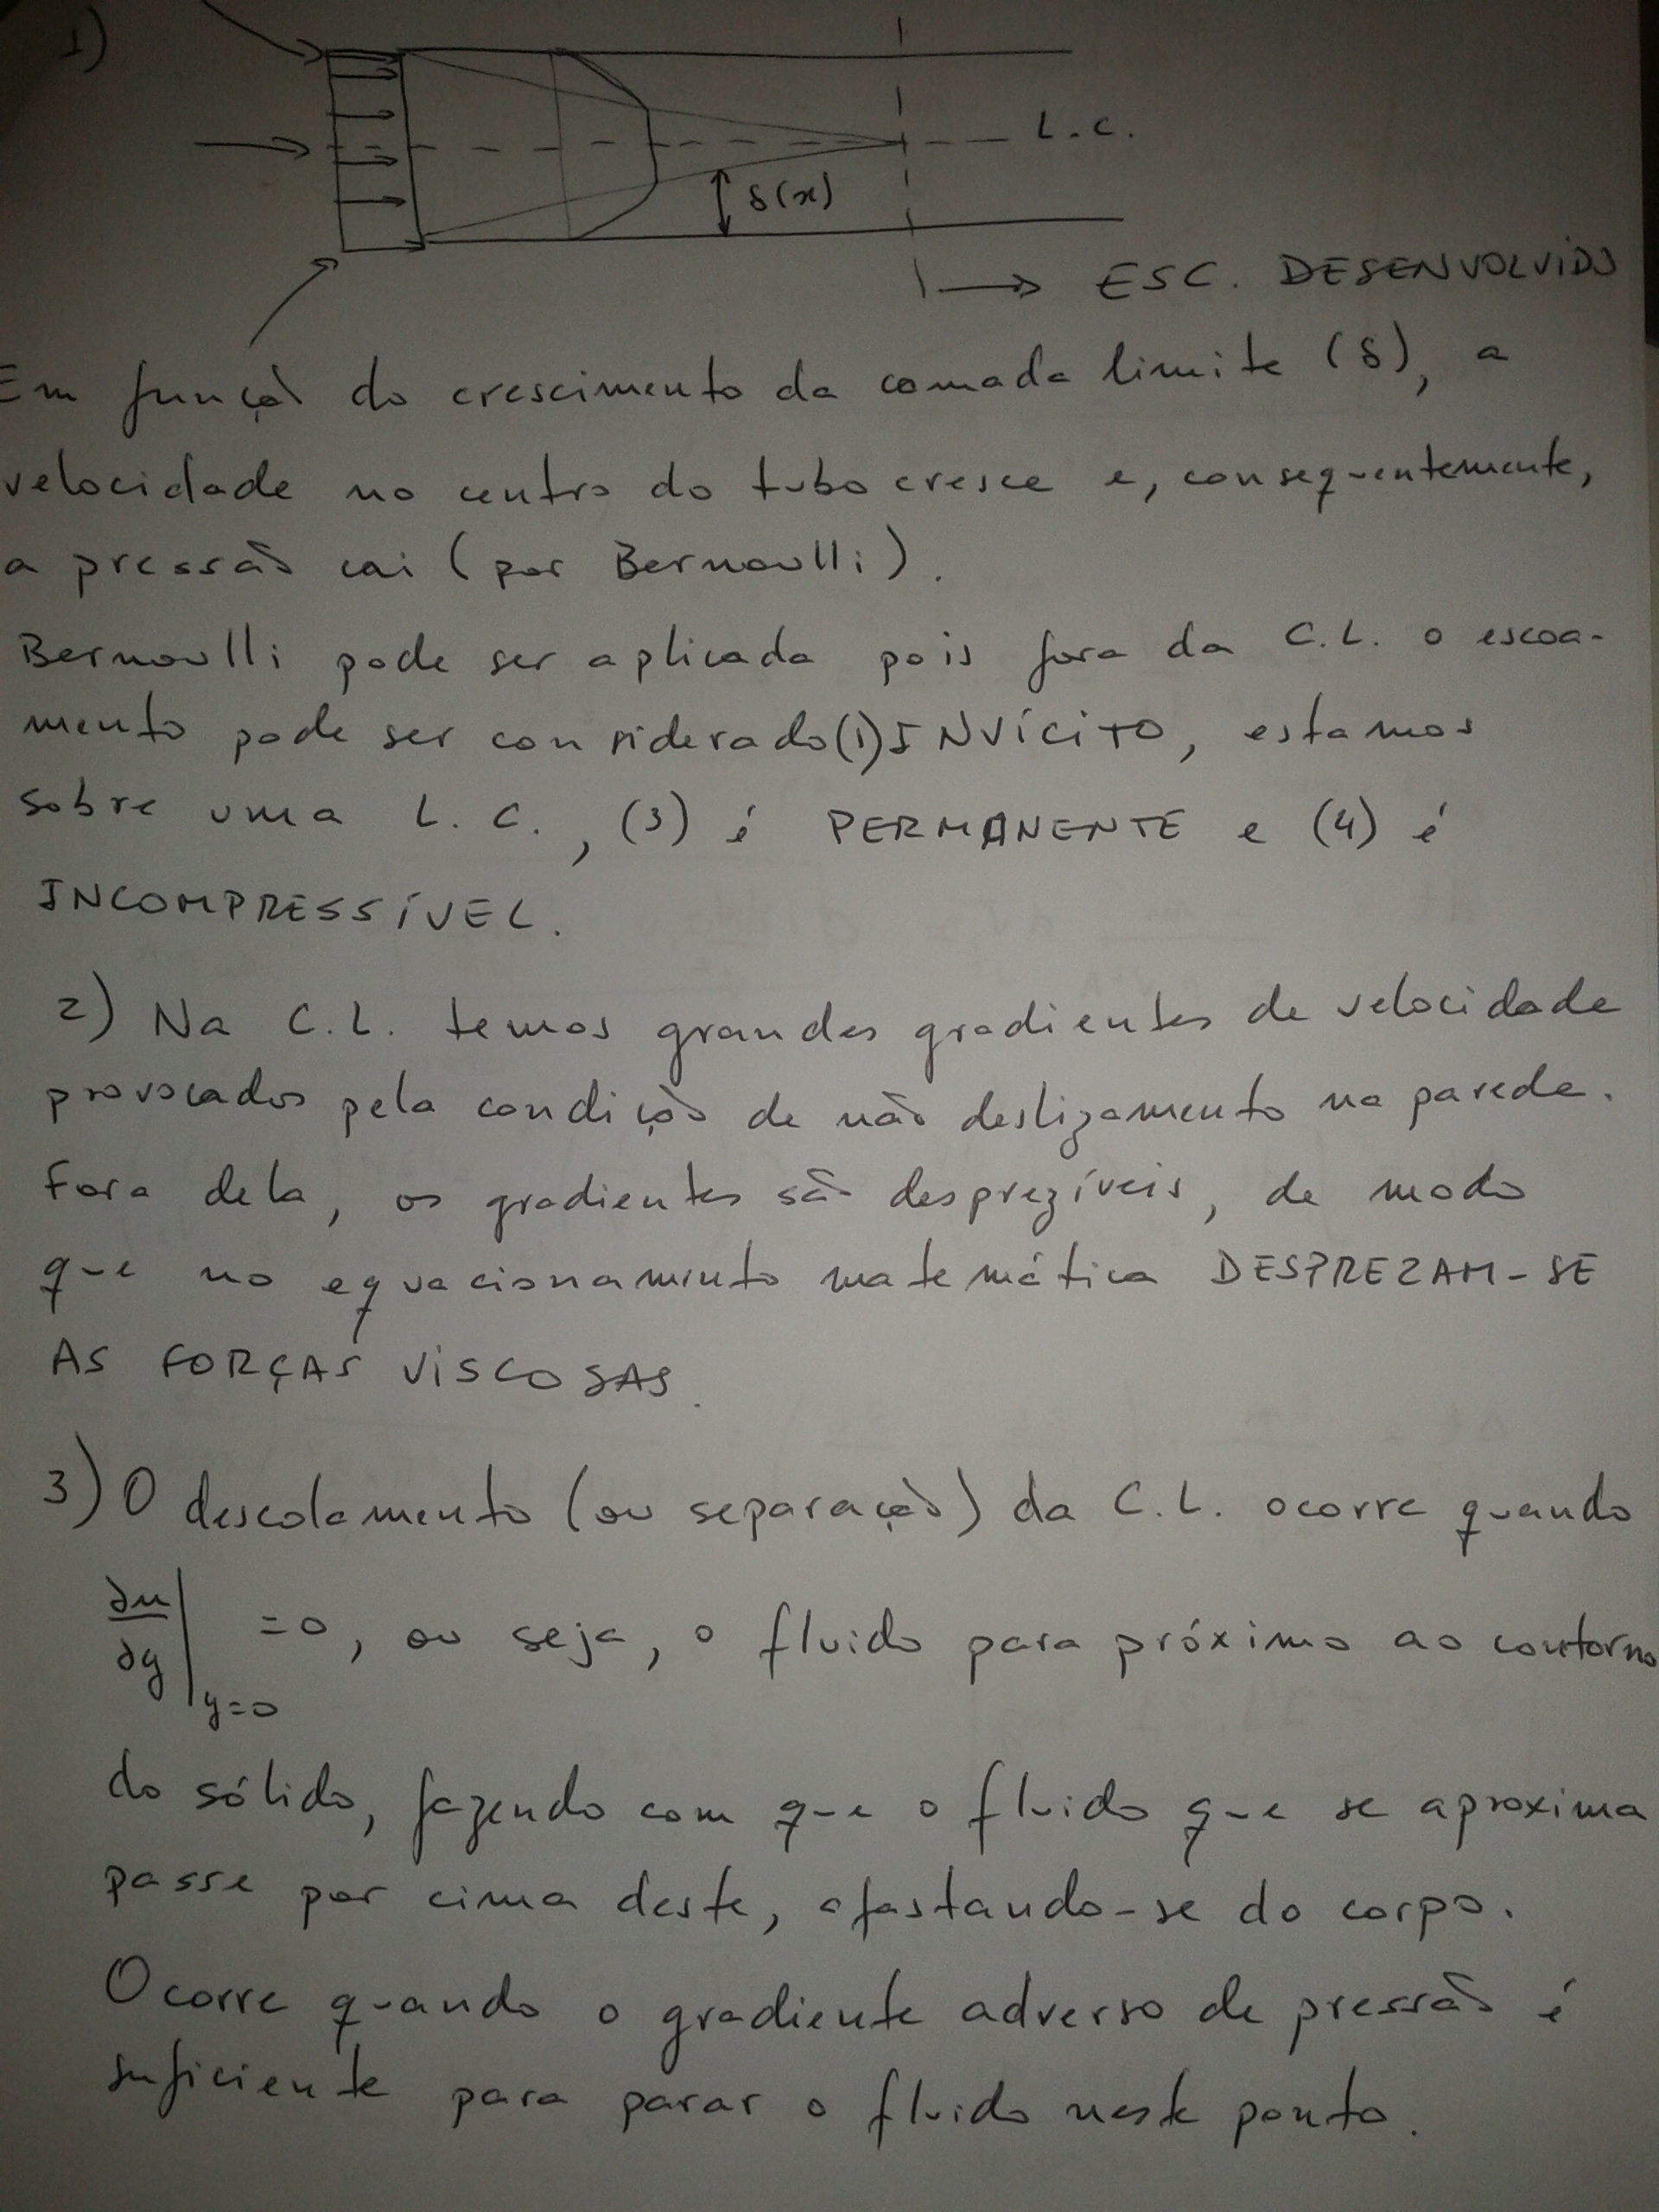 1)
L.C.
δ(x)
→ ESC. DESENVOLVIDO
Em função do crescimento da camada limite (δ), a
velocidade no centro do tubo cresce e, consequentemente,
a pressão cai (por Bernoulli).
Bernoulli pode ser aplicada pois fora da C.L. o escoa-
mento pode ser considerado (1) INVÍCITO, estamos
sobre uma L.C., (3) é PERMANENTE e (4) é
INCOMPRESSÍVEL.
2) Na C.L. temos grandes gradientes de velocidade
provocados pela condição de não deslizamento na parede.
Fora dela, os gradientes são desprezíveis, de modo
que no equacionamento matemático DESPREZAM-SE
AS FORÇAS VISCOSAS.
3) O descolamento (ou separação) da C.L. ocorre quando
∂u/∂y|y=0 =0, ou seja, o fluido para próximo ao contorno
do sólido, fazendo com que o fluido que se aproxima
passe por cima deste, afastando-se do corpo.
Ocorre quando o gradiente adverso de pressão é
suficiente para parar o fluido neste ponto.